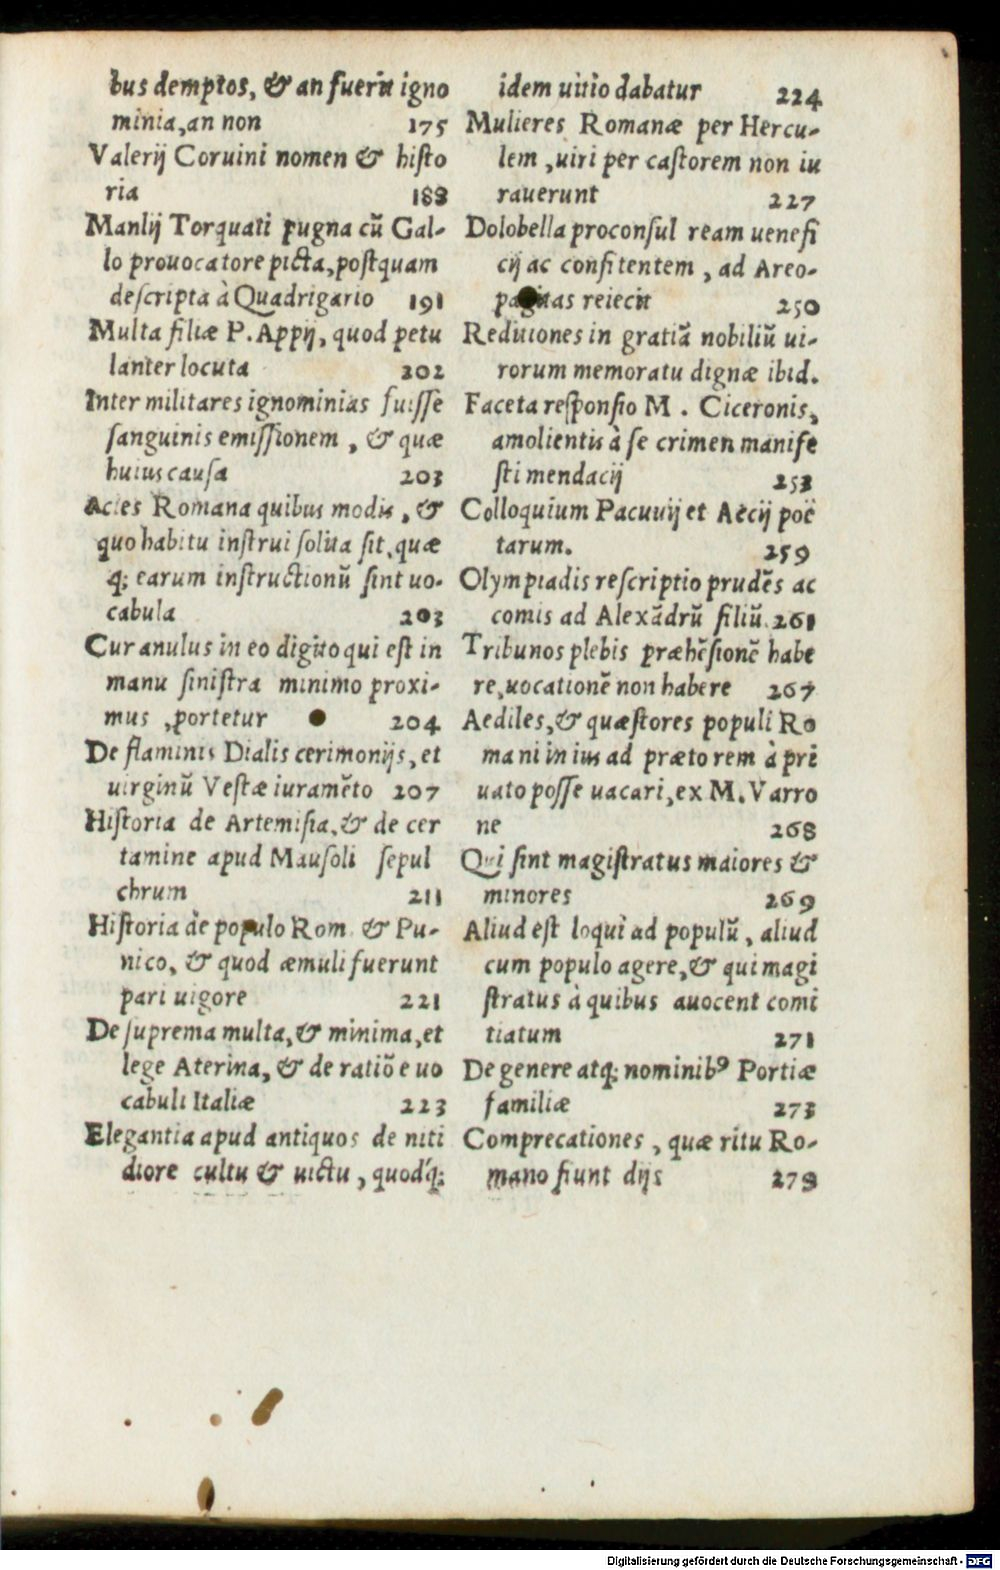 bus demptos, & an fuerit igno
minia, an non 175
Valerij Coruini nomen & histo
ria 188
Manlij Torquati pugna cũ Gal-
lo prouocatore picta, postquam
descripta à Quadrigario 191
Multa filiæ P. Appij, quod petu
lanter locuta 202
Inter militares ignominias fuisse
sanguinis emissionem, & quæ
huius causa 203
Acies Romana quibus modis, &
quo habitu instrui solita sit, quæ
q; earum instructionũ sint uo-
cabula 203
Cur anulus in eo digito qui est in
manu sinistra minimo proxi-
mus, portetur 204
De flaminis Dialis cerimonijs, et
uirginũ Vestæ iuramẽto 207
Historia de Artemisia, & de cer
tamine apud Mausoli sepul
chrum 211
Historia de populo Rom. & Pu-
nico, & quod æmuli fuerunt
pari uigore 221
De suprema multa, & minima, et
lege Aterina, & de ratiõe uo
cabuli Italiæ 223
Elegantia apud antiquos de niti
diore cultu & uictu, quodq́;
idem uitio dabatur 224
Mulieres Romanæ per Hercu-
lem, uiri per castorem non iu
rauerunt 227
Dolobella proconsul ream uenefi
cij ac confitentem, ad Areo-
pagitas reiecit 250
Reditiones in gratiã nobiliũ ui-
rorum memoratu dignæ ibid.
Faceta responsio M. Ciceronis,
amolientis à se crimen manife
sti mendacij 253
Colloquium Pacuuij et Aecij poë
tarum. 259
Olympiadis rescriptio prudẽs ac
comis ad Alexãdrũ filiũ. 261
Tribunos plebis præhẽsionẽ habe
re, uocationẽ non habere 267
Aediles, & quæstores populi Ro
mani in ius ad prætorem à pri
uato posse uacari, ex M. Varro
ne 268
Qui sint magistratus maiores &
minores 269
Aliud est loqui ad populũ, aliud
cum populo agere, & qui magi
stratus à quibus auocent comi
tiatum 271
De genere atq; nominibꝰ Portiæ
familiæ 273
Comprecationes, quæ ritu Ro-
mano fiunt dijs 278
Digitalisierung gefördert durch die Deutsche Forschungsgemeinschaft - DFG